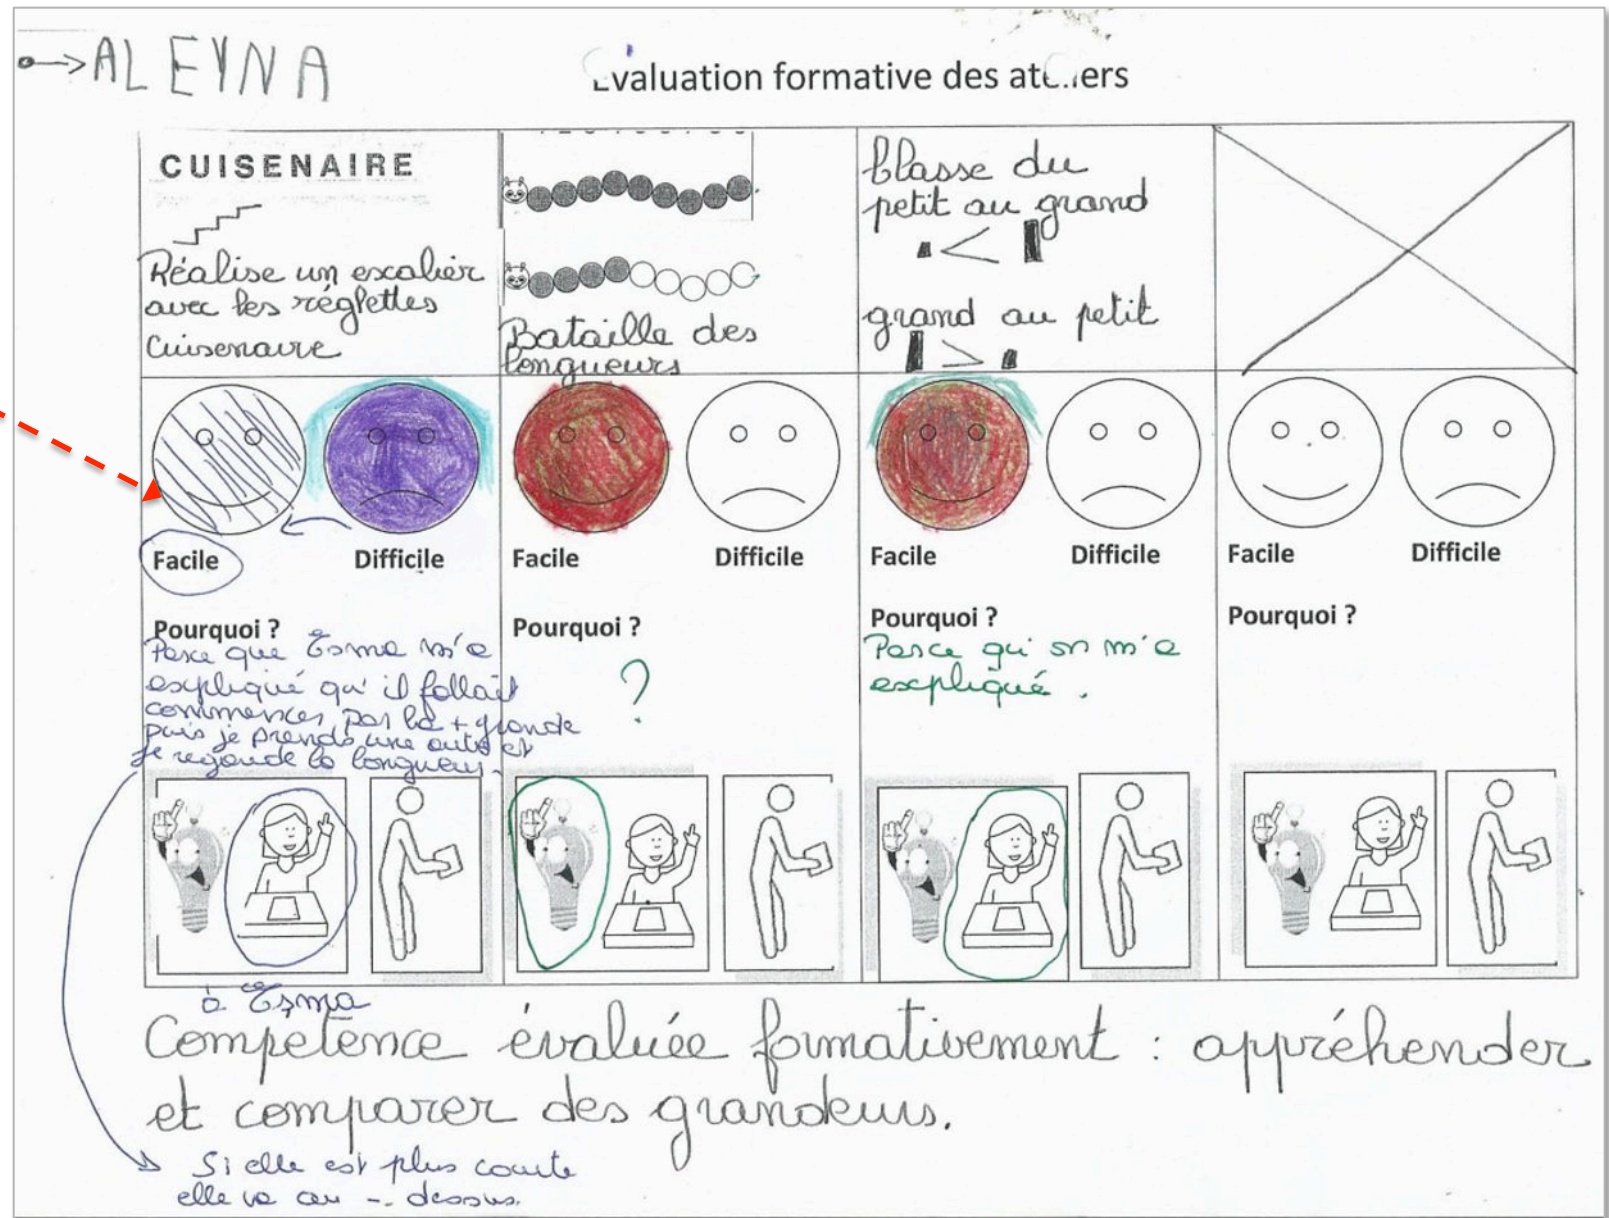 ALEYNA
Evaluation formative des ateliers
CUISENAIRE
Réalise un escalier
avec les réglettes
Cuisenaire
Bataille des
longueurs
Classe du
petit au grand
<
grand au petit
>
Facile
Difficile
Facile
Difficile
Facile
Difficile
Facile
Difficile
Pourquoi ?
Parce que Esma m'a
expliqué qu'il fallait
commencer par la + grande
puis je prends une autre et
je regarde la longueur.
Pourquoi ?
?
Pourquoi ?
Parce qui on m'a
expliqué.
Pourquoi ?
à Esma
Compétence évaluée formativement : appréhender
et comparer des grandeurs.
Si elle est plus courte
elle va au - dessus.